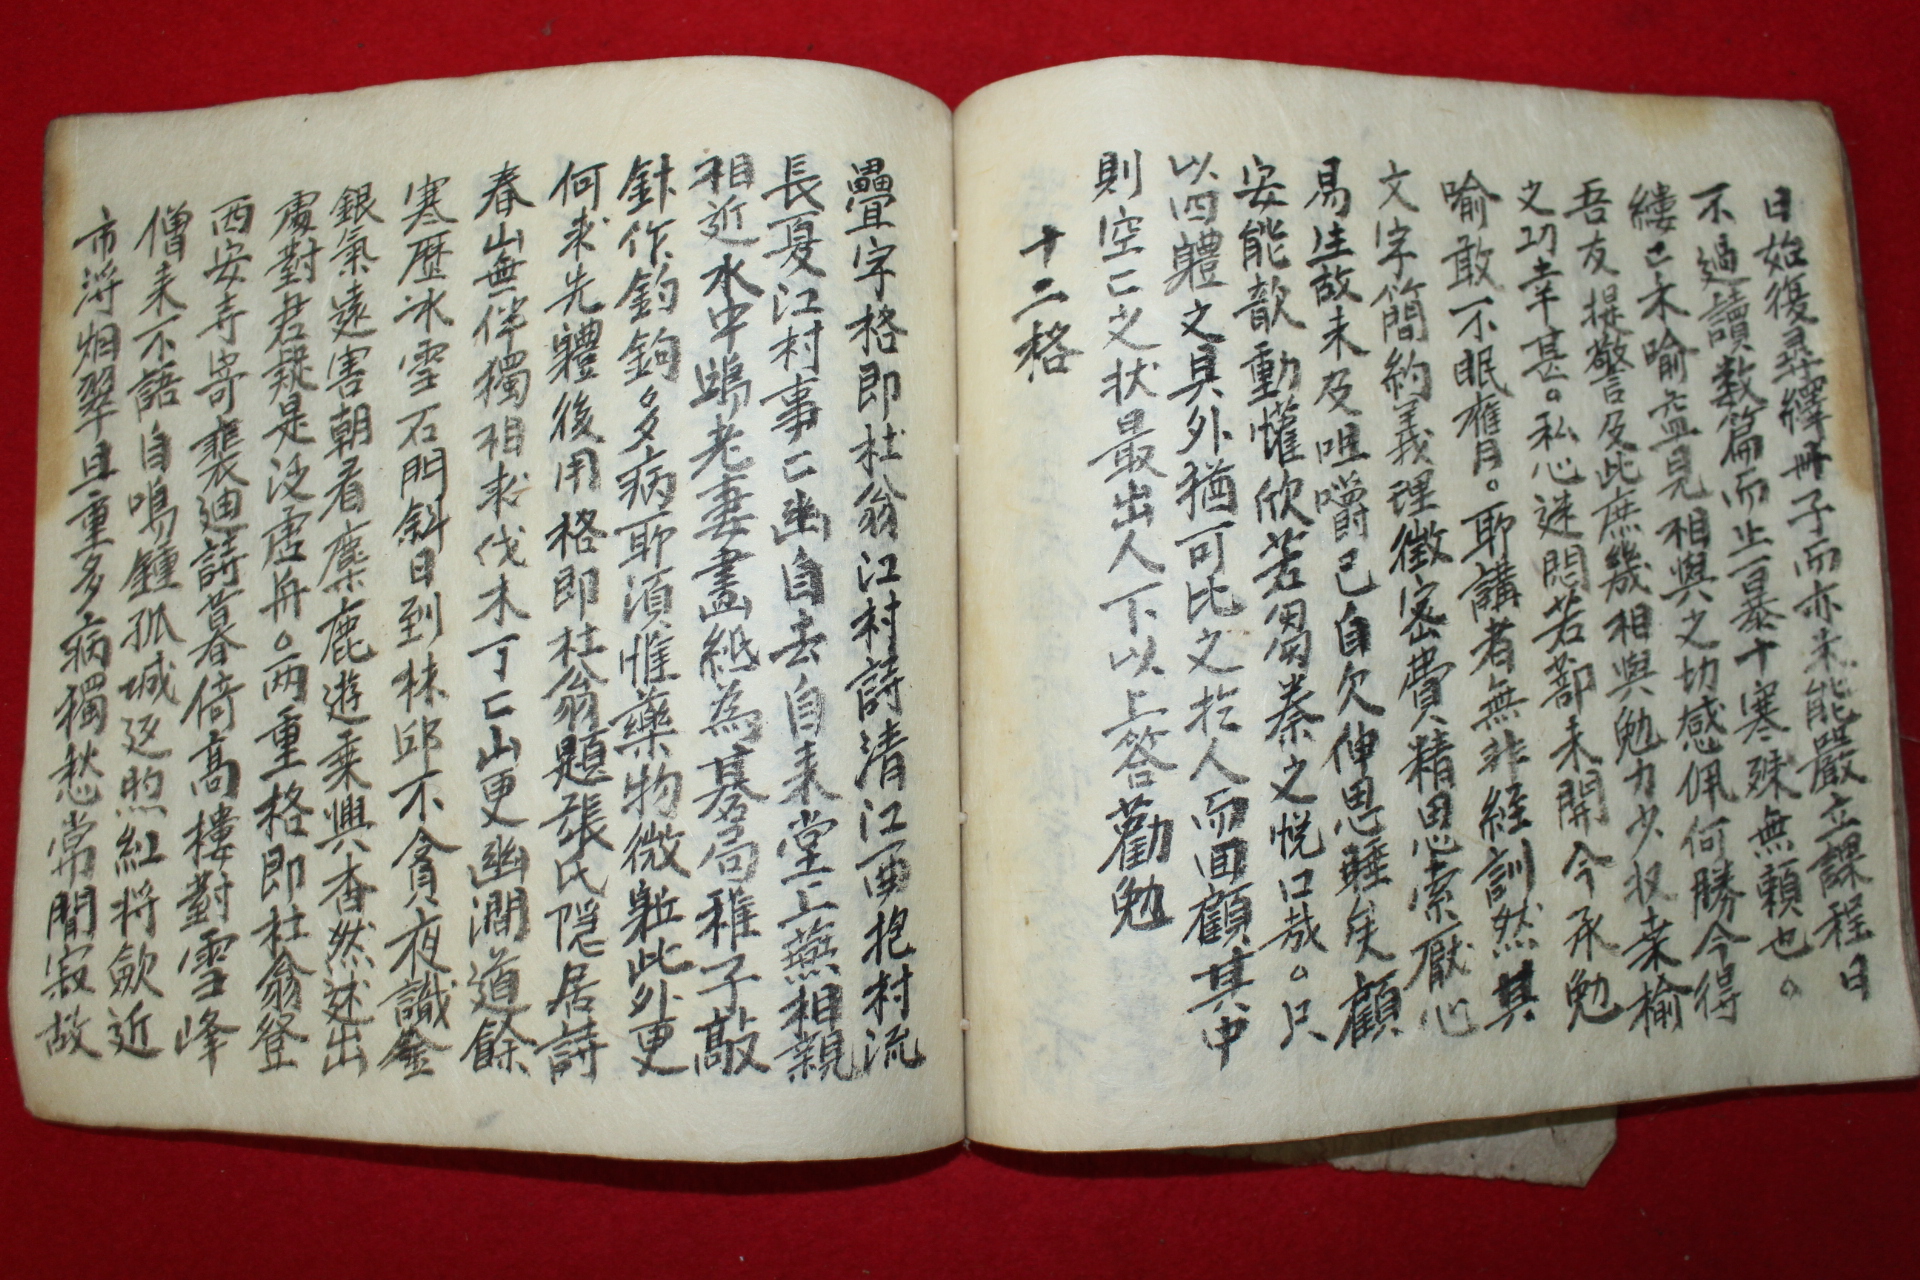 日始復尋繹冊子而亦未能嚴立課程日
不過讀数篇而止一暴十寒殊無頼也。
縷己未喻益見相與之切感佩何勝今得
吾友提警言及此庶幾相與勉力少収桒榆
之功幸甚。私心迷悶若蔀未開今承勉
喻敢不眠膺。耶講者無非経訓然其
文字簡約義理微密費精思索厭心
易生故未及咀嚼已自欠伸思睡矣顧
安能歆動懽欣若芻豢之悦口哉。只
以四軆之具外猶可比之於人而回顧其中
則空匕之状最出人下以上答勸勉
十二格
疊字格即杜翁江村詩清江一曲抱村流
長夏江村事匕幽自去自来堂上燕相親
相近水中鷗老妻畫紙為棊局稚子敲
針作釣鉤。多病耶湏惟藥物微軀此外更
何求先軆後用格即杜翁題張氏隠居詩
春山無伴獨相求伐木丁匕山更幽澗道餘
寒歴冰雪石門斜日到林邱不貪夜識金
銀氣遠害朝看麋鹿遊乗興杳然迷出
處對君疑是泛虗舟。两重格即杜翁登
西安寺寄裴迪詩暮倚髙樓對雪峰
僧来不語自鳴鍾孤城返照紅将歛近
市浮烟翠且重多病獨愁常闃寂故